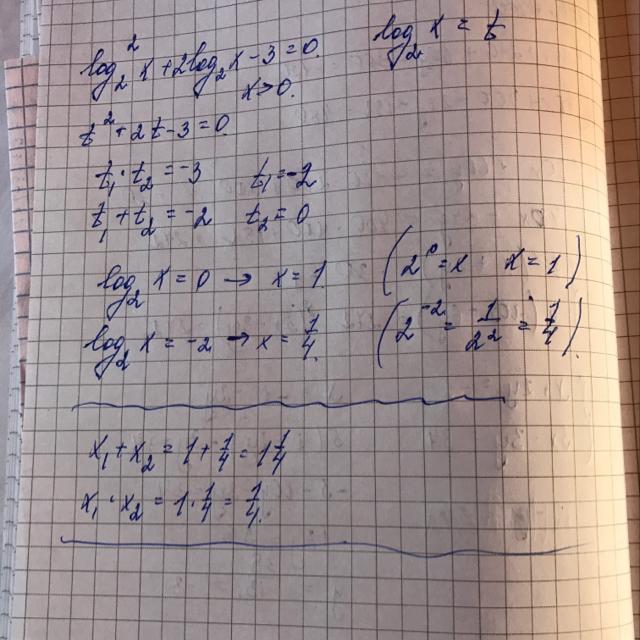 log₂² x + 2log₂ x - 3 = 0. log₂ x = t
x > 0.
t² + 2t - 3 = 0
t₁ · t₂ = -3 t₁ = -2
t₁ + t₂ = -2 t₂ = 0
log₂ x = 0 → x = 1. (2⁰ = x x = 1)
log₂ x = -2 → x = 1/4. (2⁻² = 1/2² = 1/4)
x₁ + x₂ = 1 + 1/4 = 1 1/4
x₁ · x₂ = 1 · 1/4 = 1/4.